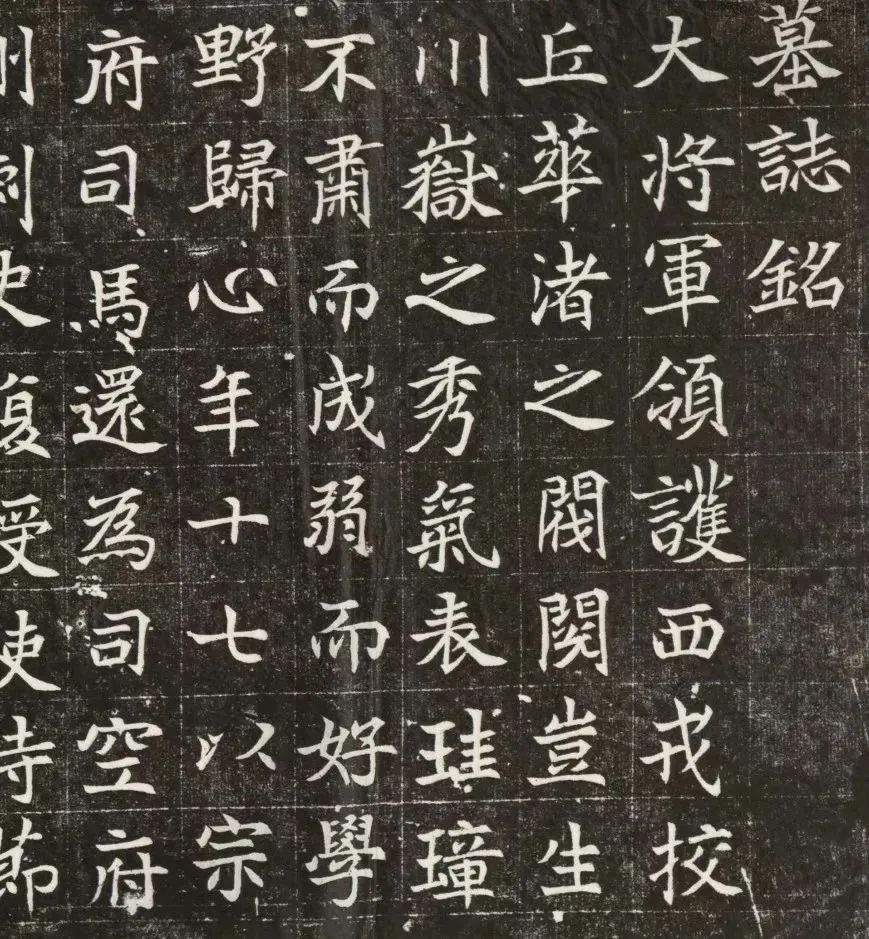 墓誌銘
大将軍領護西戎挍
丘華渚之閥閱豈生
川嶽之秀氣表珪璋
不肅而成弱而好學
野歸心年十七以宗
府司馬還為司空府
刺史復授使持節